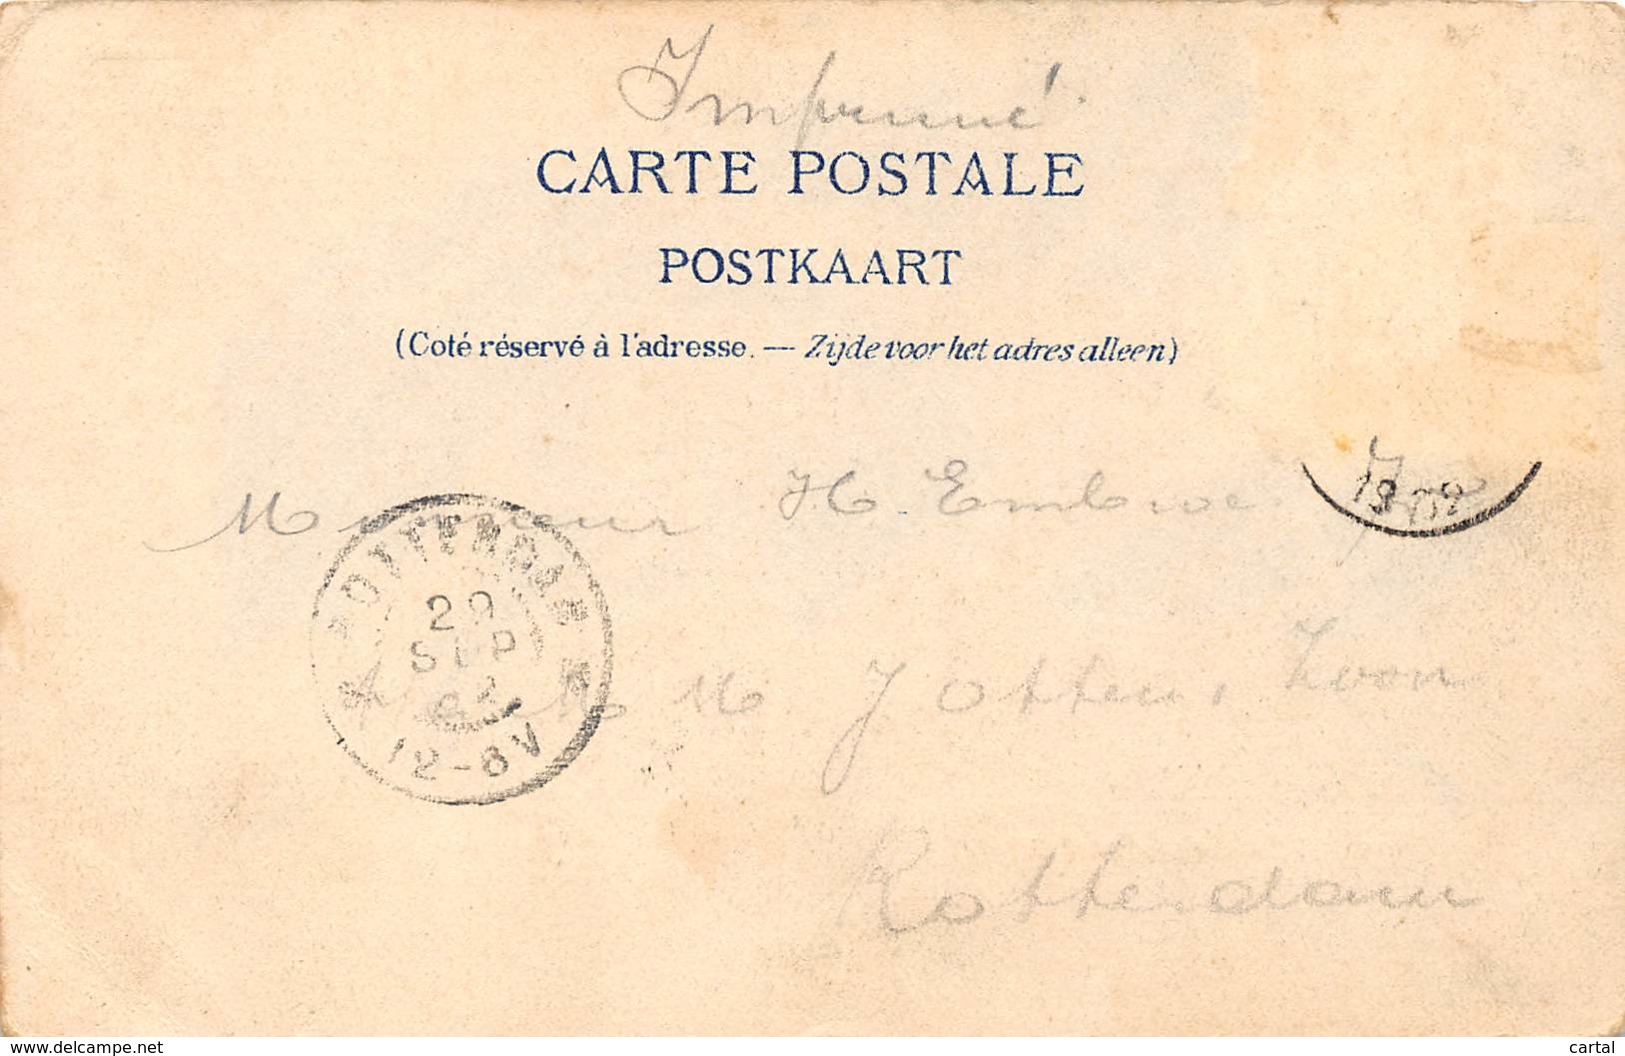 Imprimé
CARTE POSTALE
POSTKAART
(Coté réservé à l'adresse. — Zijde voor het adres alleen)
Monsieur H
1902
ROTTERDAM
29
SEP
02
12-8V
M M J Otten, Zoon
Rotterdam
www.delcampe.net
cartal